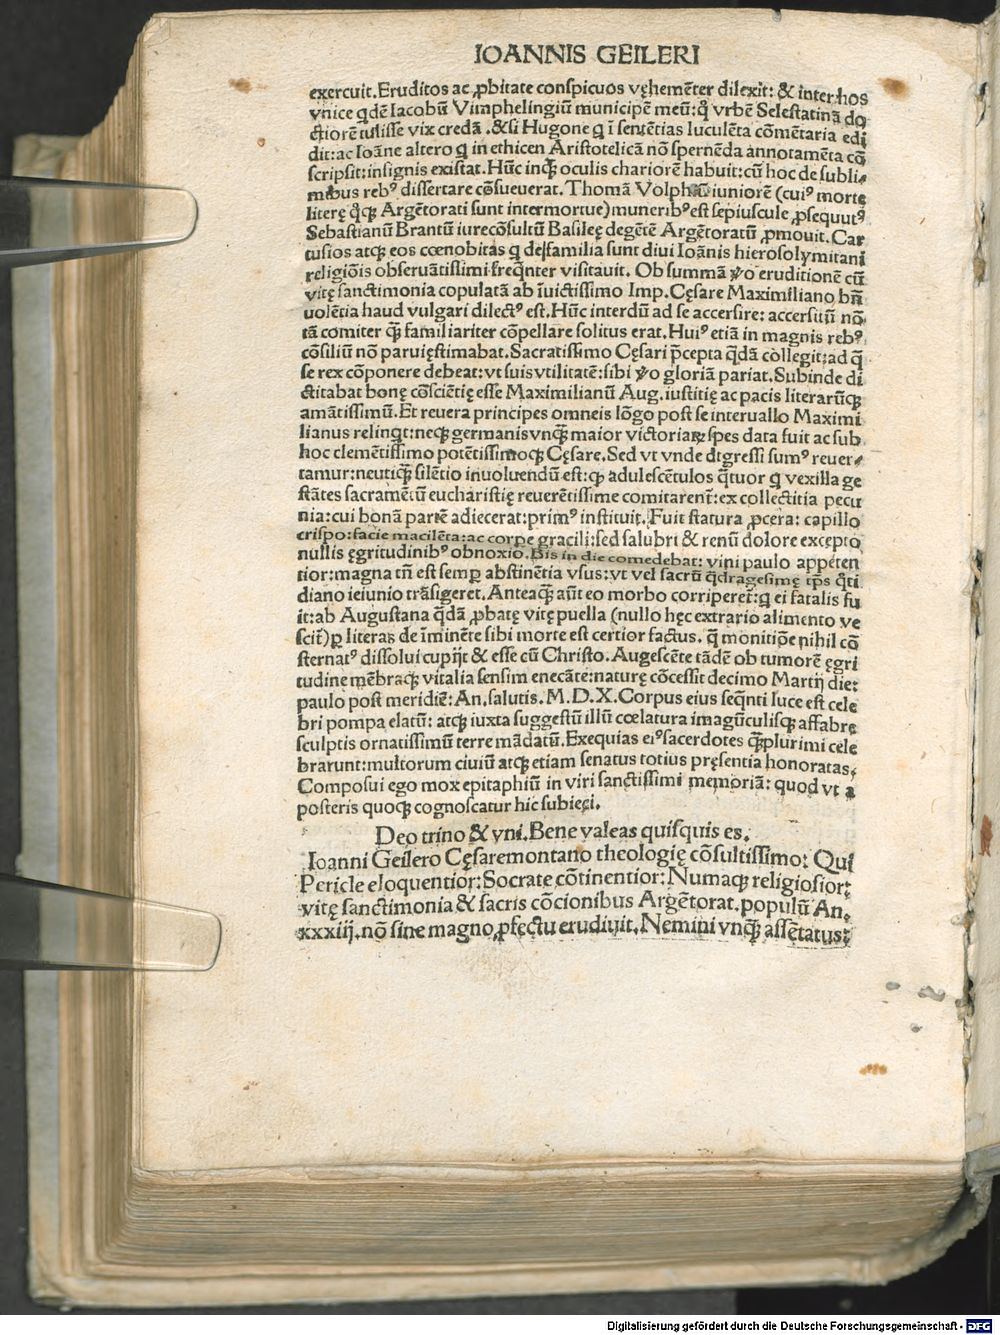 IOANNIS GEILERI
exercuit. Eruditos ac ꝓbitate conspicuos vęhemẽter dilexit: & inter hos
vnice qdẽ Iacobũ Vimphelingiũ municipẽ meũ: q̃ vrbẽ Selestatinã do
ctiorẽ tulisse vix credã. & si Hugone q ĩ sentẽtias luculẽta cõmẽtaria edi
dit: ac Ioãne altero q in ethicen Aristotelicã nõ spernẽda annotamẽta cõ
scripsit: insignis existat. Hũc inqȝ oculis chariorẽ habuit: cũ hoc de subli⸗
mibus rebꝰ dissertare cõsueuerat. Thomã Volphiũ iuniorẽ (cuiꝰ morte
literę q̃qȝ Argẽtorati sunt intermortue) muneribꝰ est sepiuscule ꝓsequutꝰ
Sebastianũ Brantũ iurecõsultũ Basileę degẽtẽ Argẽtoratũ ꝓmouit. Car
tusios atqȝ eos cœnobitas q de familia sunt diui Ioãnis hierosolymitani
religiõis obseruãtissimi freq̃nter visitauit. Ob summã ꝟo eruditionẽ cũ
vitę sanctimonia copulatã ab ĩuictissimo Imp. Cęsare Maximiliano bñ
uolẽtia haud vulgari dilectꝰ est. Hũc interdũ ad se accersire: accersitũ nõ
tã comiter q̃ȝ familiariter cõpellare solitus erat. Huiꝰ etiã in magnis rebꝰ
cõsiliũ nõ paruięstimabat. Sacratissimo Cęsari p̃cepta q̃dã collegit: ad q̃
se rex cõponere debeat: vt suis vtilitatẽ: sibi ꝟo gloriã pariat. Subinde di
ctitabat bonę cõsciẽtię esse Maximilianũ Aug. iustitię ac pacis literarũqȝ
amãtissimũ. Et reuera principes omneis lõgo post se interuallo Maximi
lianus relinqt: neqȝ germanis vnq̃ȝ maior victoriaꝝ spes data fuit ac sub
hoc clemẽtissimo potẽtissimoqȝ Cęsare. Sed vt vnde digressi sumꝰ reuer⸗
tamur: neutiq̃ȝ silẽtio inuoluendũ est: qȝ adulescẽtulos q̃tuor q vexilla ge
stãtes sacramẽtũ eucharistię reuerẽtissime comitarent̃: ex collectitia pecu
nia: cui bonã partẽ adiecerat: primꝰ instituit. Fuit statura ꝓcera: capillo
crispo: facie macilẽta: ac corpe gracili: sed salubri & renũ dolore excepto
nullis ęgritudinibꝰ obnoxio. Bis in die comedebat: vini paulo appeten
tior: magna tñ est semꝑ abstinẽtia vsus: vt vel sacrũ q̃dragesimę tp̃s q̃ti
diano ieiunio trãsigeret. Anteaq̃ȝ aũt eo morbo corriperet̃: q ei fatalis fu
it: ab Augustana q̃dã ꝓbatę vitę puella (nullo hęc extrario alimento ve
scit̃) ꝑ literas de ĩminẽte sibi morte est certior factus. q̃ monitiõe nihil cõ
sternatꝰ dissolui cupijt & esse cũ Christo. Augescẽte tãdẽ ob tumorẽ ęgri
tudine mẽbraqȝ vitalia sensim enecãte: naturę cõcessit decimo Martij die:
paulo post meridiẽ: An. salutis. M. D. X. Corpus eius seq̃nti luce est cele
bri pompa elatũ: atqȝ iuxta suggestũ illũ cœlatura imagũculisqȝ affabre
sculptis ornatissimũ terre mãdatũ. Exequias eiꝰ sacerdotes q̃ȝplurimi cele
brarunt: multorum ciuiũ atqȝ etiam senatus totius pręsentia honoratas.
Composui ego mox epitaphiũ in viri sanctissimi memoriã: quod vt a
posteris quoqȝ cognoscatur hic subieci.
Deo trino & vni. Bene valeas quisquis es.
Ioanni Geilero Cęsaremontano theologię cõsultissimo: Qui
Pericle eloquentior: Socrate cõtinentior: Numaqȝ religiosior:
vitę sanctimonia & sacris cõcionibus Argẽtorat. populũ An.
xxxiij. nõ sine magno ꝓfectu erudiuit. Nemini vnq̃ȝ assẽtatus:
Digitalisierung gefördert durch die Deutsche Forschungsgemeinschaft - DFG